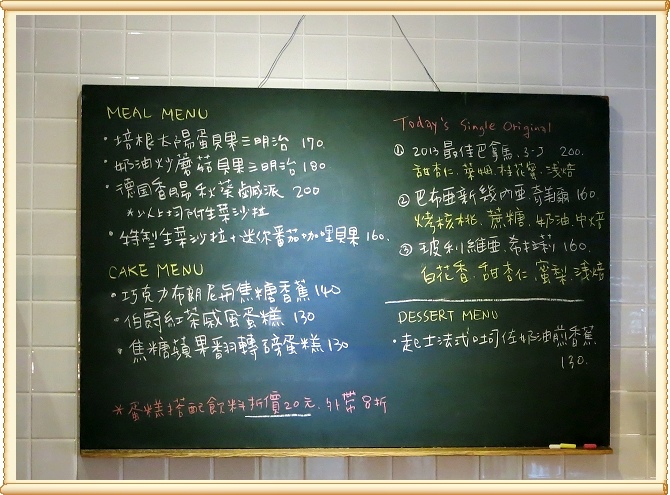 MEAL MENU
・培根太陽蛋貝果三明治 170.
・奶油炒蘑菇貝果三明治 180
・德國香腸秋葵鹹派 200
*以上均附生菜沙拉
・特製生菜沙拉+迷你番茄咖哩貝果 160.
CAKE MENU
・巧克力布朗尼與焦糖香蕉 140
・伯爵紅茶戚風蛋糕 130
・焦糖蘋果翻轉磅蛋糕 130
*蛋糕搭配飲料折價20元、外帶8折
Today's Single Original
① 2013最佳巴拿馬、3-J 200.
甜杏仁、萊姆、桂花蜜、淺焙
② 巴布亞新幾內亞、奇美霸 160
烤核桃、蔗糖、奶油、中焙
③ 玻利維亞、希利 160.
白花香、甜杏仁、蜜梨、淺焙
DESSERT MENU
・起士法式吐司佐奶油煎香蕉
130.